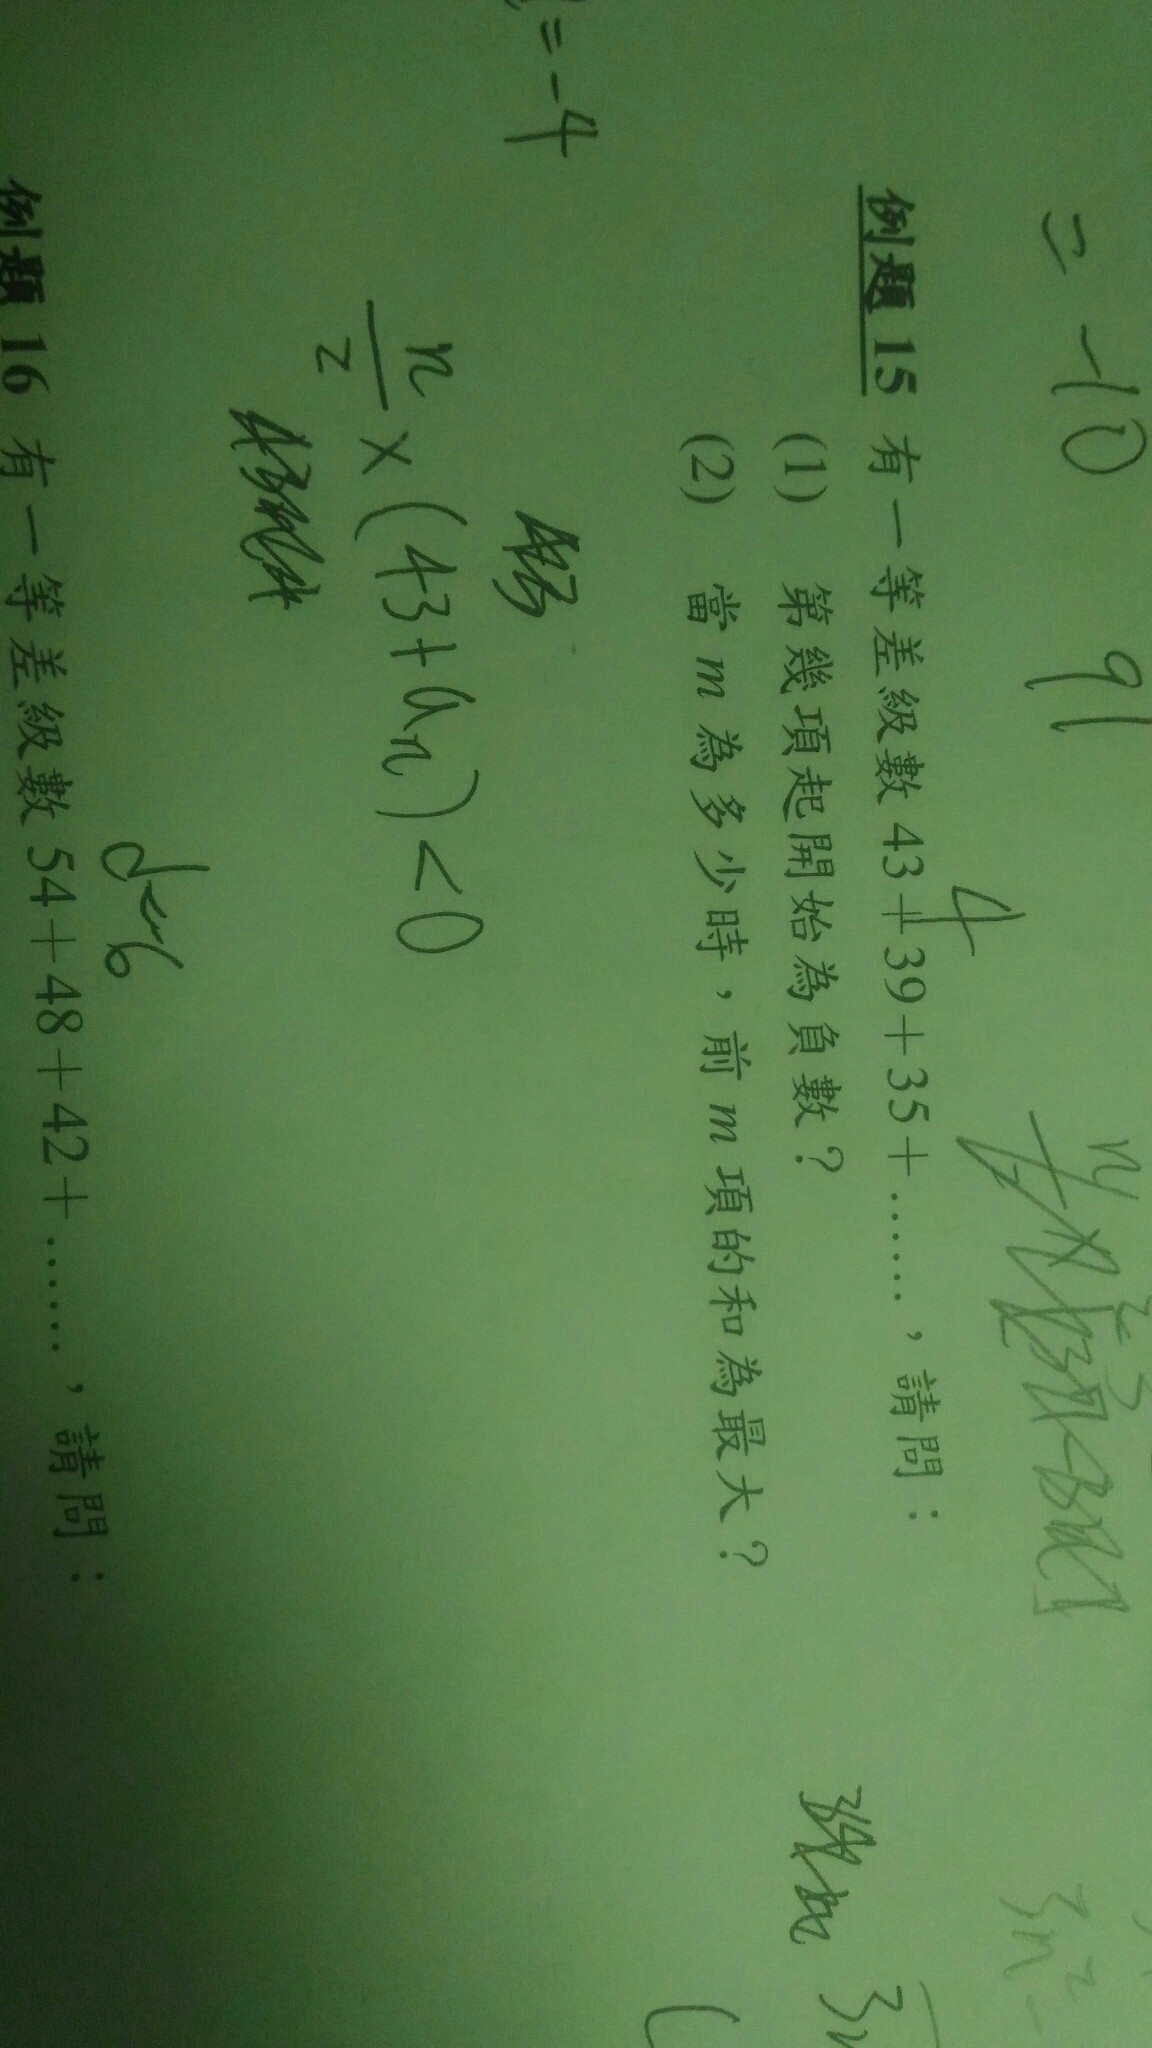 = -4
= -10
91
4
例題 15 有一等差級數 43＋39＋35＋……，請問：
(1) 第幾項起開始為負數？
(2) 當 m 為多少時，前 m 項的和為最大？
n/2 × (43+an) < 0
d=-6
例題 16 有一等差級數 54＋48＋42＋……，請問：